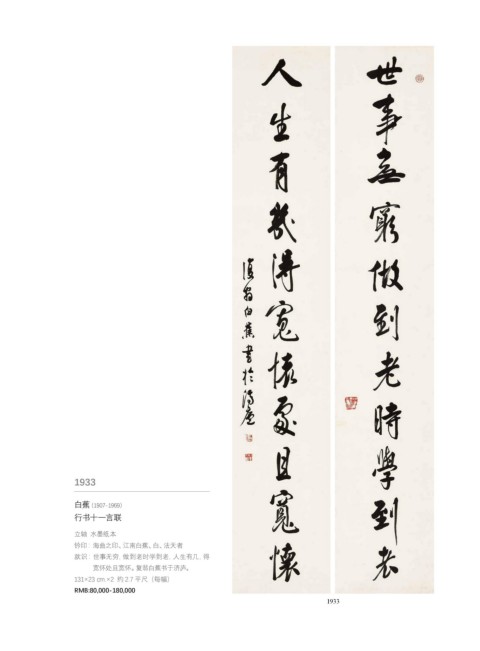 世事無窮做到老時學到老
人生有幾得寬懷處且寬懷
復翁白蕉書於濟廬
1933
白蕉 (1907-1969)
行书十一言联
立轴 水墨纸本
钤印：海曲之印、江南白蕉、白、法天者
款识：世事无穷，做到老时学到老。人生有几，得
宽怀处且宽怀。复翁白蕉书于济庐。
131×23 cm ×2 约 2.7 平尺（每幅）
RMB:80,000-180,000
1933